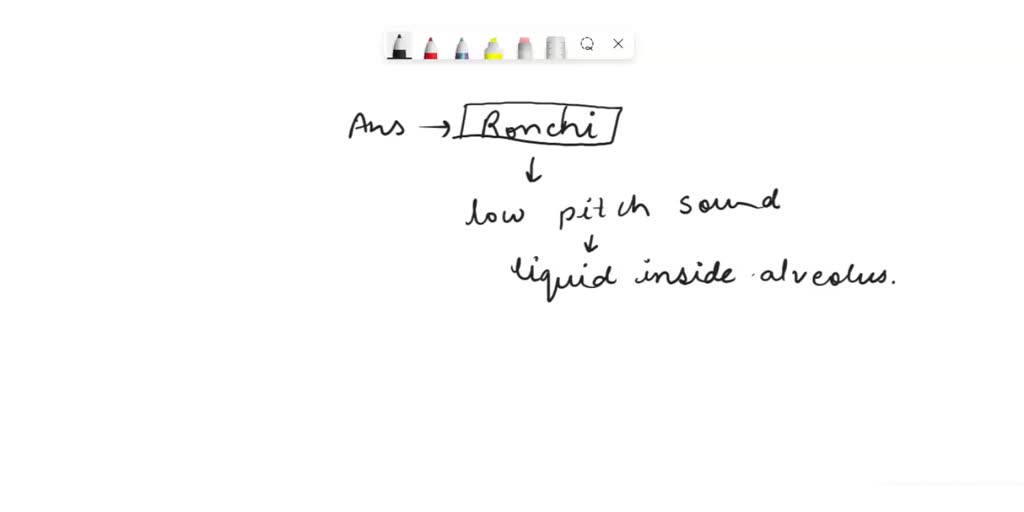 Ans → Ronchi
↓
low pitch sound
↓
liquid inside alveolus.